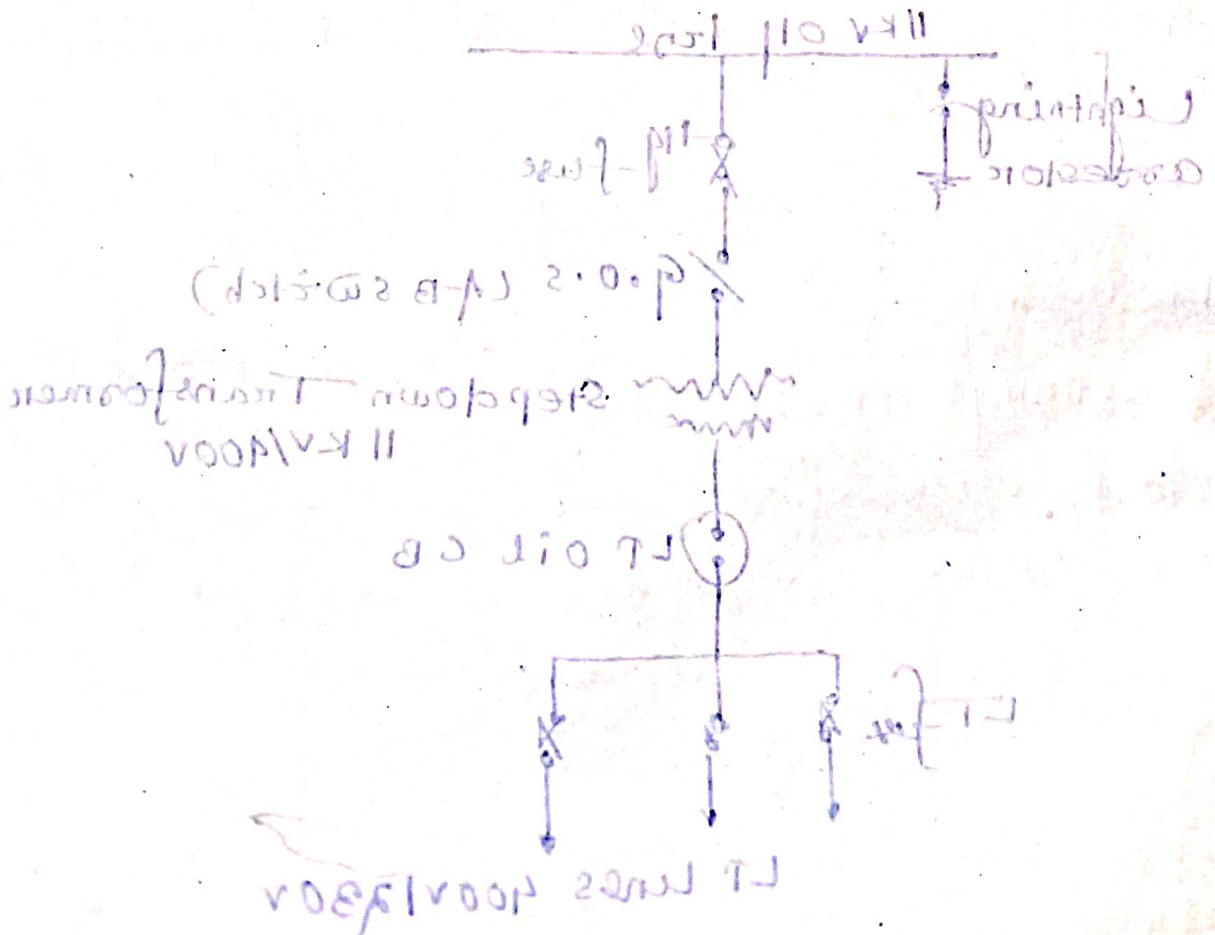 11KV OH line
Lightning
arrestor
Hg-fuse
G.O.S (A-B switch)
Stepdown Transformer
11KV/400V
LT Oil CB
LT-fuse
LT Lines 400V/230V